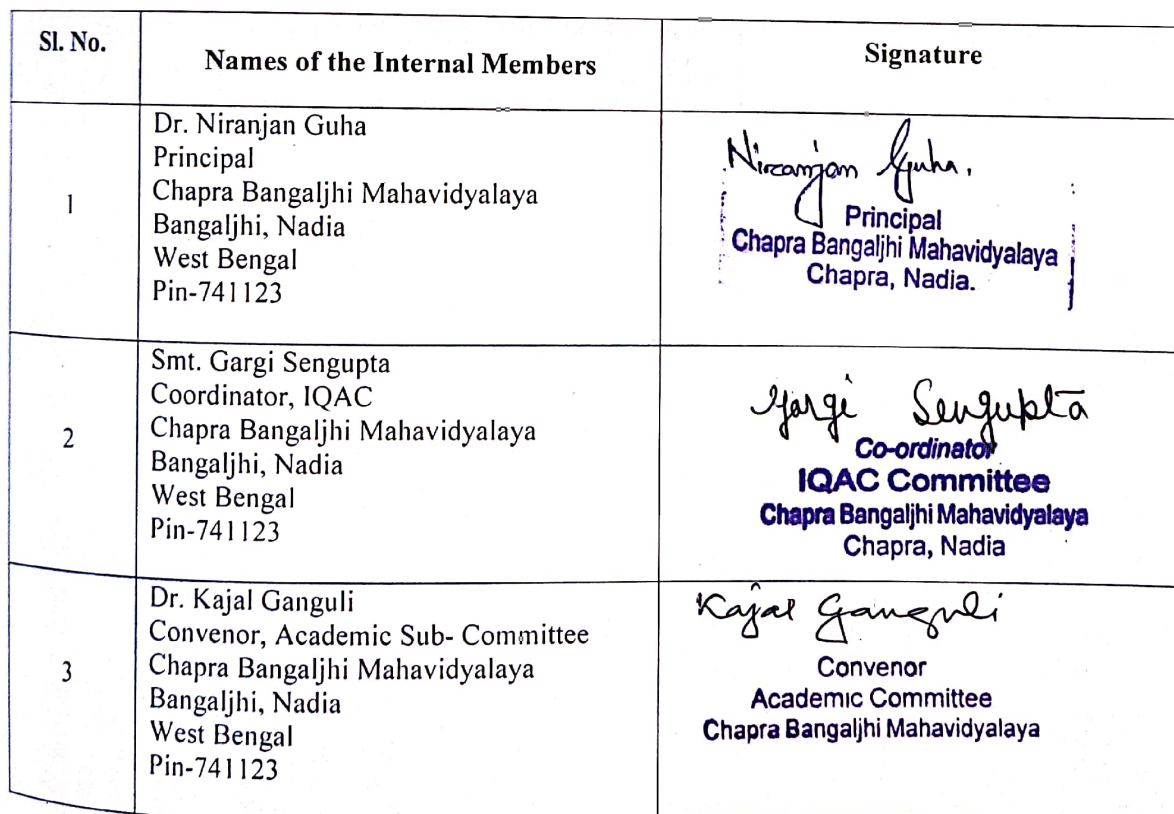 Sl. No.
Names of the Internal Members
Signature
1
Dr. Niranjan Guha
Principal
Chapra Bangaljhi Mahavidyalaya
Bangaljhi, Nadia
West Bengal
Pin-741123
Niranjan Guha.
Principal
Chapra Bangaljhi Mahavidyalaya
Chapra, Nadia.
2
Smt. Gargi Sengupta
Coordinator, IQAC
Chapra Bangaljhi Mahavidyalaya
Bangaljhi, Nadia
West Bengal
Pin-741123
Gargi Sengupta
Co-ordinator
IQAC Committee
Chapra Bangaljhi Mahavidyalaya
Chapra, Nadia
3
Dr. Kajal Ganguli
Convenor, Academic Sub- Committee
Chapra Bangaljhi Mahavidyalaya
Bangaljhi, Nadia
West Bengal
Pin-741123
Kajal Ganguli
Convenor
Academic Committee
Chapra Bangaljhi Mahavidyalaya